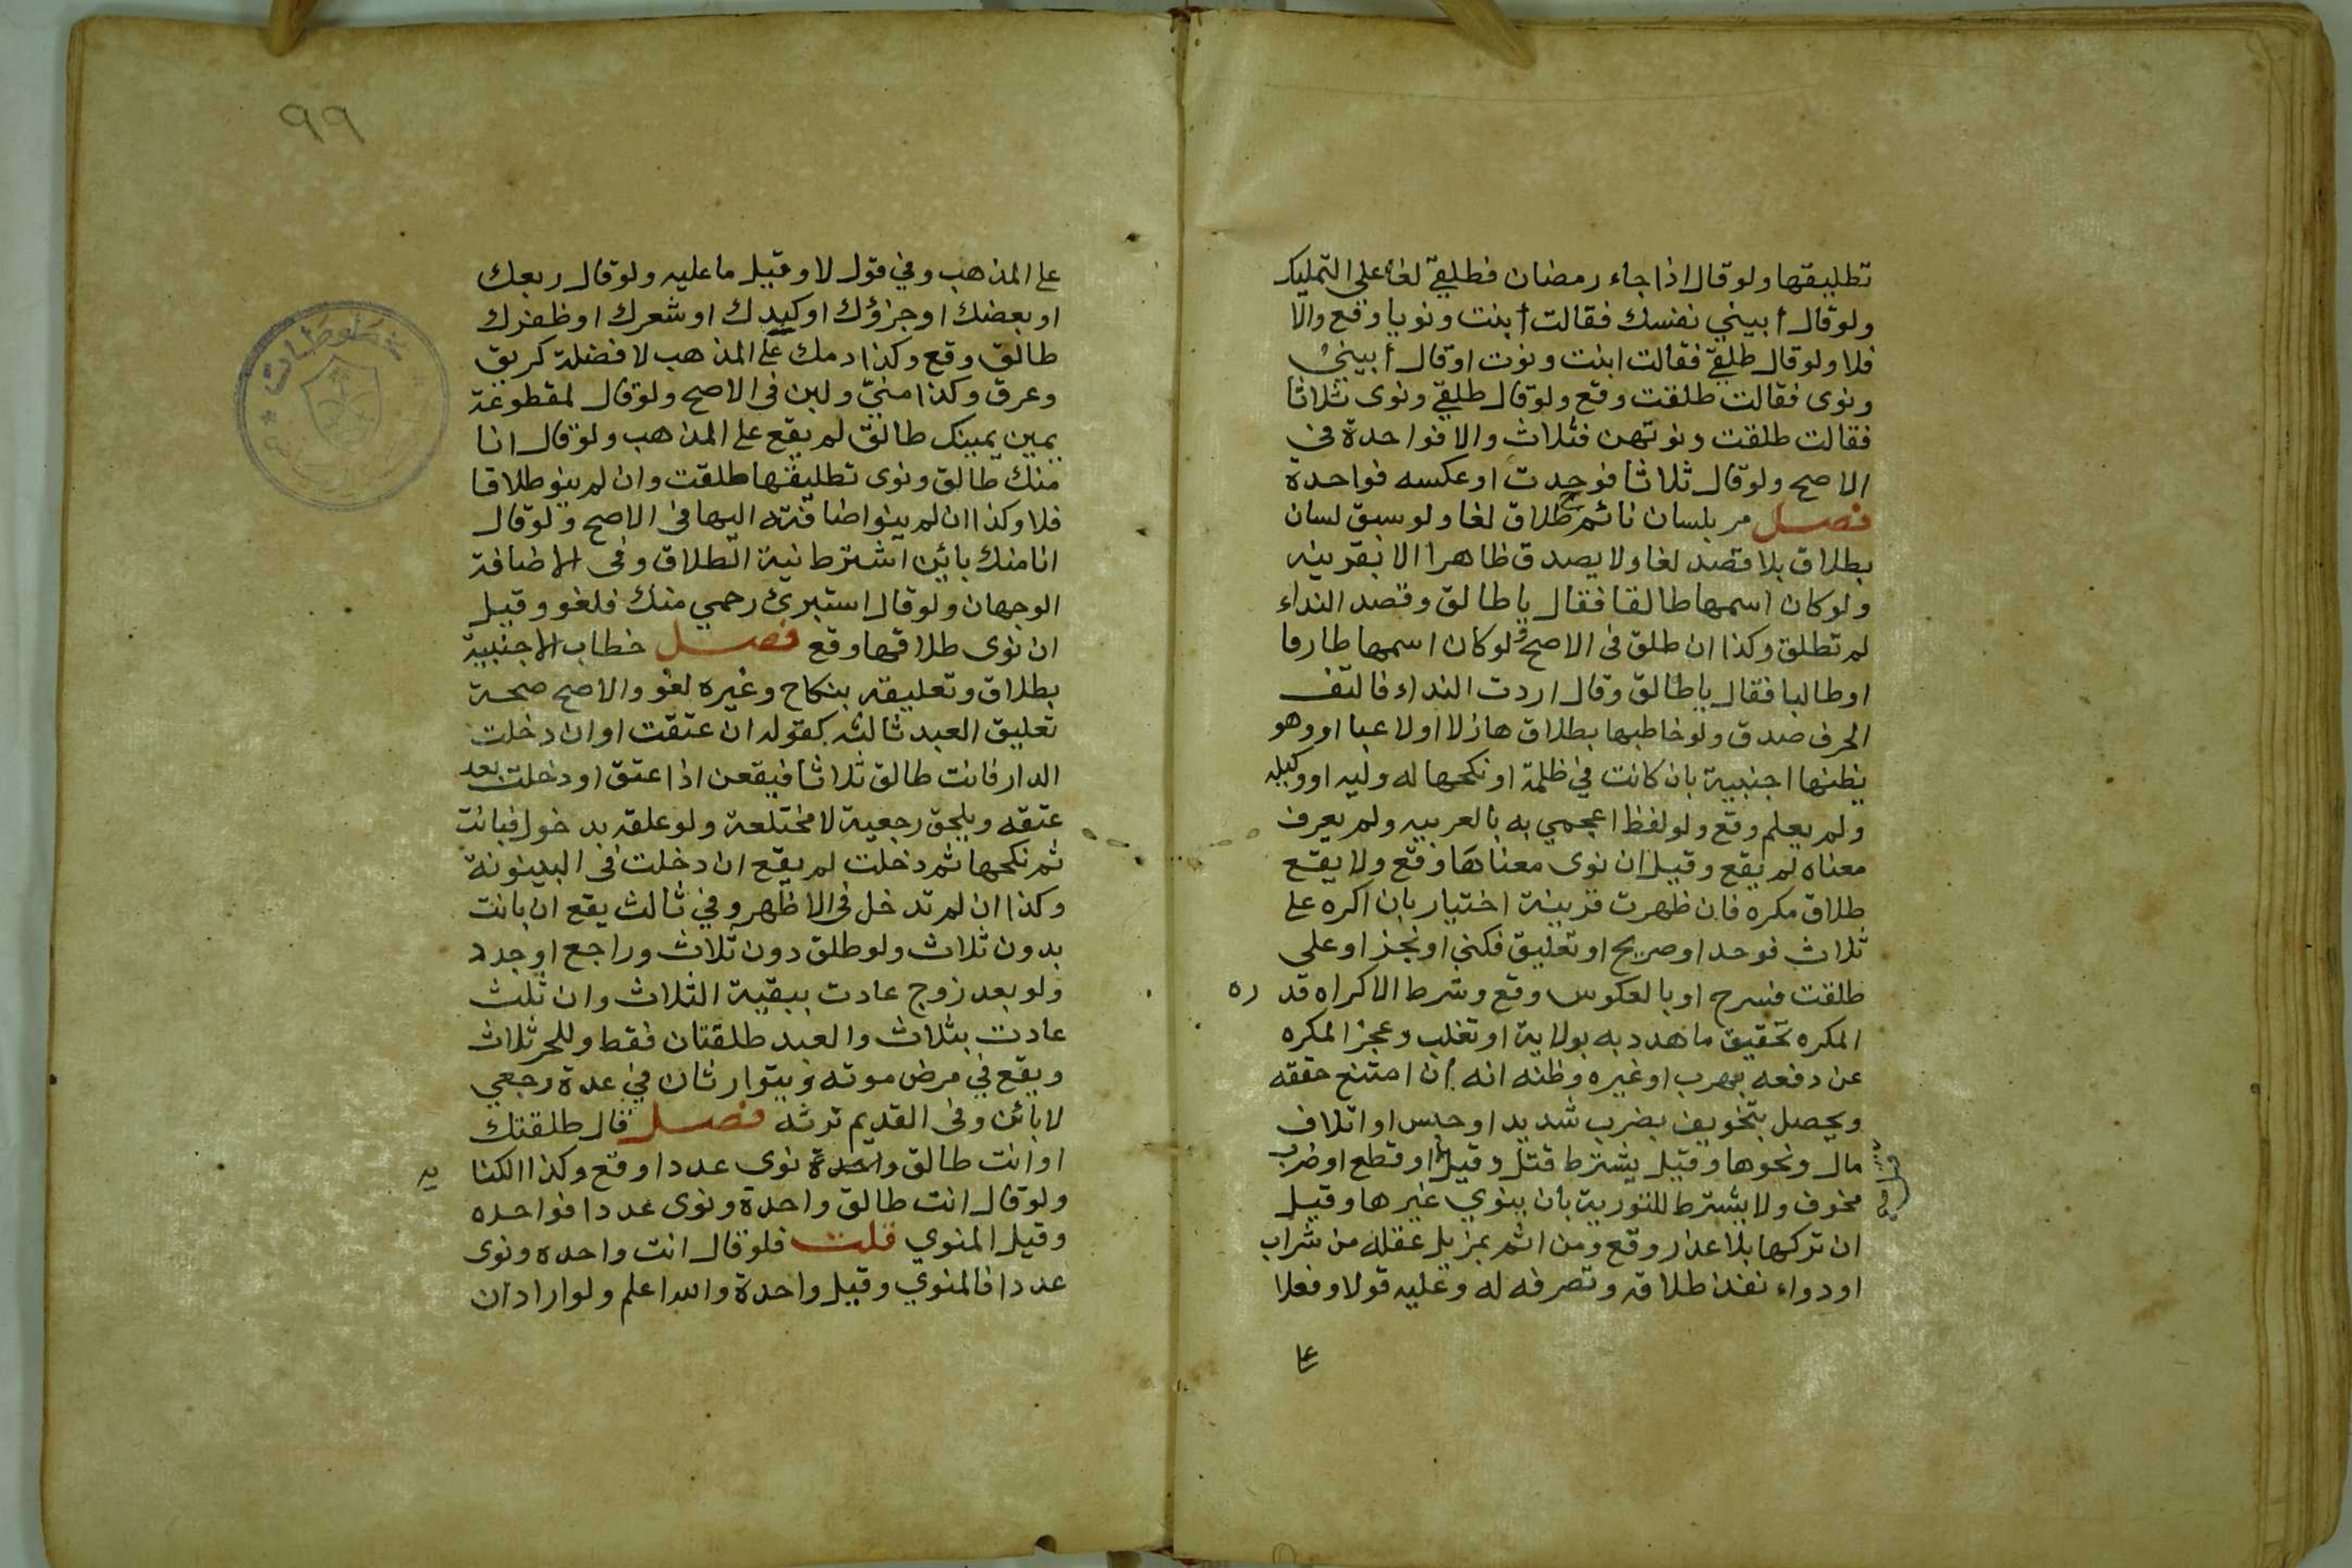 تطليقها ولو قال اذا جاء رمضان فطلقي لغا على التمليك
ولو قال أبيني نفسك فقالت أبنت ونويا وقع والا
فلا ولو قال طلقي فقالت ابنت ونوت او قال أبيني
ونوى فقالت طلقت وقع ولو قال طلقي ونوى ثلاثا
فقالت طلقت ونوتهن فثلاث والا فواحدة في
الاصح ولو قال ثلاثا فوحدت او عكسه فواحدة
فصل مر بلسان نائم طلاق لغا ولو سبق لسان
بطلاق بلا قصد لغا ولا يصدق ظاهرا الا بقرينه
ولو كان اسمها طالقا فقال يا طالق وقصد النداء
لم تطلق وكذا ان طلق في الاصح ولو كان اسمها طارقا
او طالبا فقال يا طالق وقال اردت النداء فالتف
الحرف صدق ولو خاطبها بطلاق هازلا او لاعبا او وهو
يظنها اجنبية بان كانت في ظلمة او نكحها له وليه او وكيله
ولم يعلم وقع ولو لفظ اعجمي به بالعربيه ولم يعرف
معناه لم يقع وقيل ان نوى معناها وقع ولا يقع
طلاق مكره فان ظهرت قرينة اختيار بان اكره على
ثلاث فوحد او صريح او تعليق فكنى او نجز او على
طلقت فسرح او بالعكوس وقع وشرط الاكراه قد ره
المكره تحقيق ما هدد به بولاية او تغلب وعجز المكره
عن دفعه بهرب او غيره وظنه انه ان امتنع حققه
ويحصل بتخويف بضرب شديد او حبس او اتلاف
مال ونحوها وقيل يشترط قتل وقيل او قطع او ضرب
مخوف ولا يشترط للتورية بان ينوي غيرها وقيل
ان تركها بلا عذر وقع ومن اثم بمزيل عقله من شراب
او دواء نفذ طلاقه وتصرفه له وعليه قولا وفعلا
على
٩٩
على المذهب وفي قول لا وقيل ما عليه ولو قال ربعك
او بعضك او جزؤك او كبدك او شعرك او ظفرك
طالق وقع وكذا دمك على المذهب لا فضلة كريق
وعرق وكذا مني ولبن في الاصح ولو قال لمقطوعة
يمين يمينك طالق لم يقع على المذهب ولو قال انا
منك طالق ونوى تطليقها طلقت وان لم ينو طلاقا
فلا وكذا ان لم ينو اضافته اليها في الاصح ولو قال
انا منك بائن اشترط نية الطلاق وفي الاضافة
الوجهان ولو قال استبرئ رحمي منك فلغو وقيل
ان نوى طلاقها وقع فصل خطاب الاجنبية
بطلاق وتعليقه بنكاح وغيره لغو والاصح صحة
تعليق العبد ثالثه كقوله ان عتقت او ان دخلت
الدار فانت طالق ثلاثا فيقعن اذا عتق او دخلت بعد
عتقه ويلحق رجعية لا مختلعة ولو علقه بدخول فبانت
ثم نكحها ثم دخلت لم يقع ان دخلت في البينونة
وكذا ان لم تدخل في الاظهر وفي ثالث يقع ان بانت
بدون ثلاث ولو طلق دون ثلاث وراجع او جدد
ولو بعد زوج عادت ببقية الثلاث وان ثلث
عادت بثلاث والعبد طلقتان فقط وللحر ثلاث
ويقع في مرض موته ويتوارثان في عدة رجعي
لا بائن وفي القديم ترثه فصل قال طلقتك
او انت طالق واحدة نوى عددا وقع وكذا الكنا يه
ولو قال انت طالق واحدة ونوى عددا فواحده
وقيل المنوي قلت فلو قال انت واحده ونوى
عددا فالمنوي وقيل واحدة والله اعلم ولو اراد ان
مخطوطات